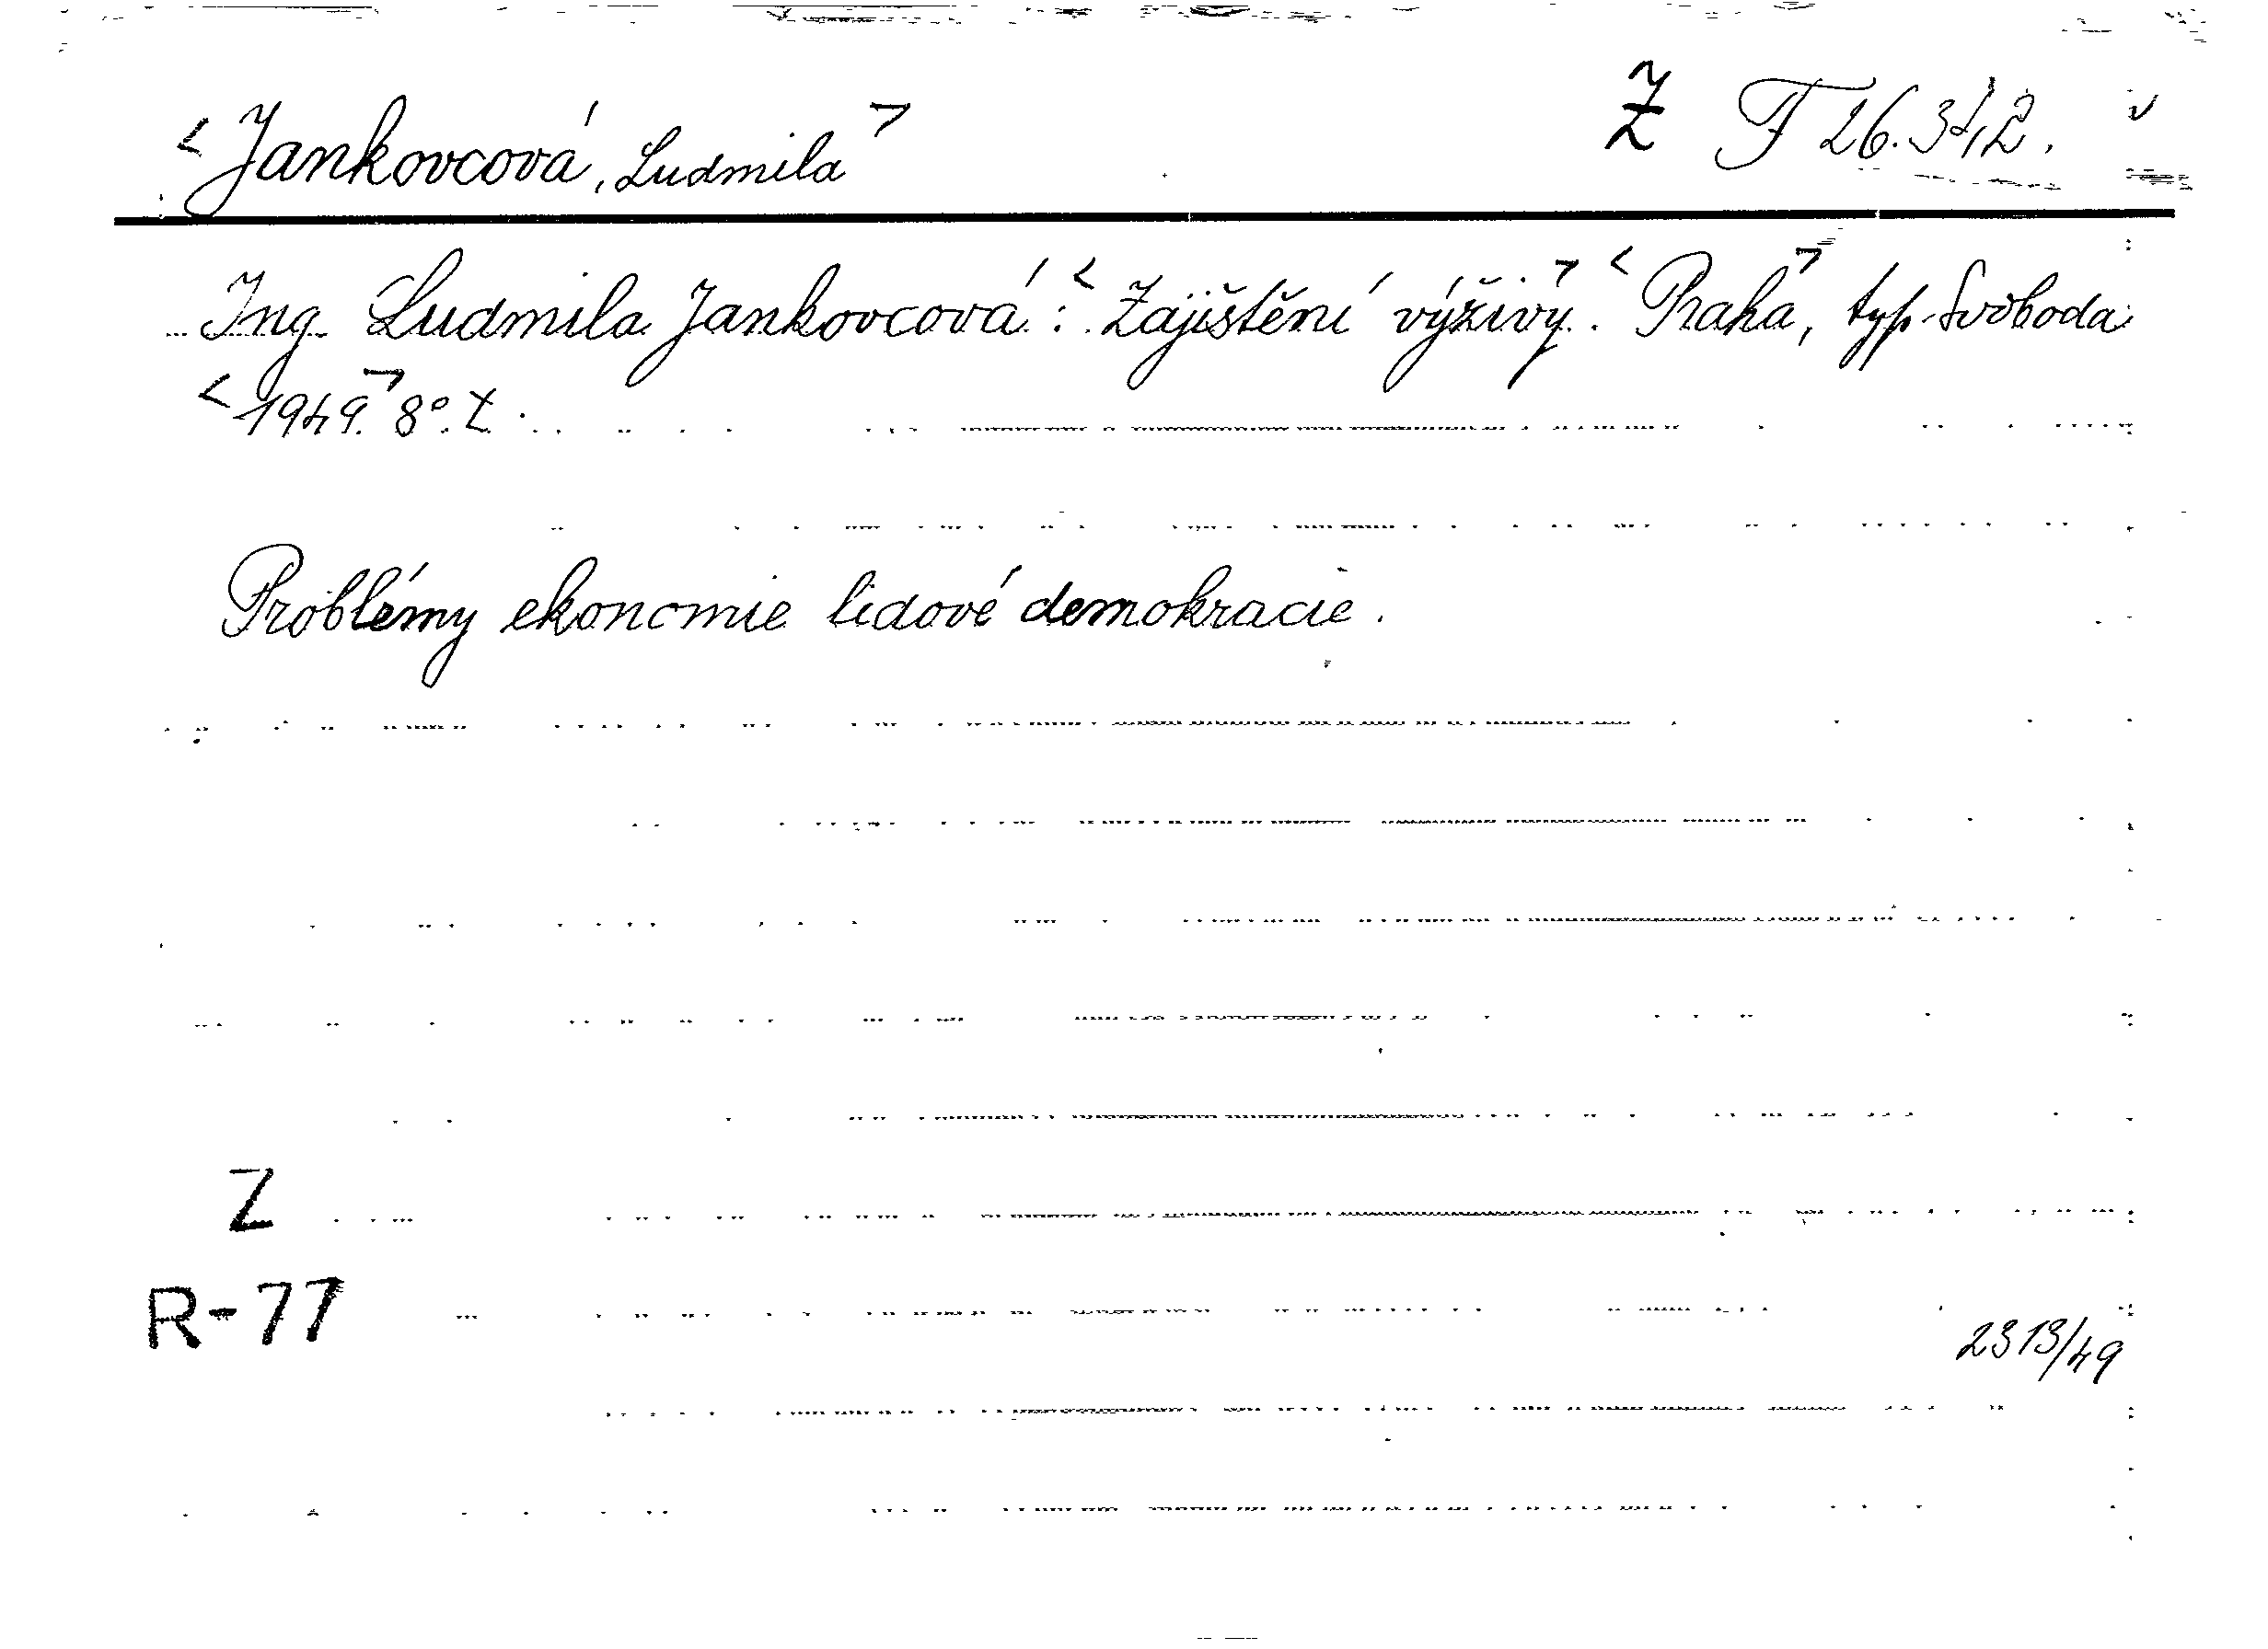 <Jankovcová, Ludmila> Z F 26.342.
Ing Ludmila Jankovcová: <Zajištění výživy.> <Praha>, typ. Svoboda
<1949.> 8°. Z.
Problémy ekonomie lidové demokracie.
Z
R-77
2313/49